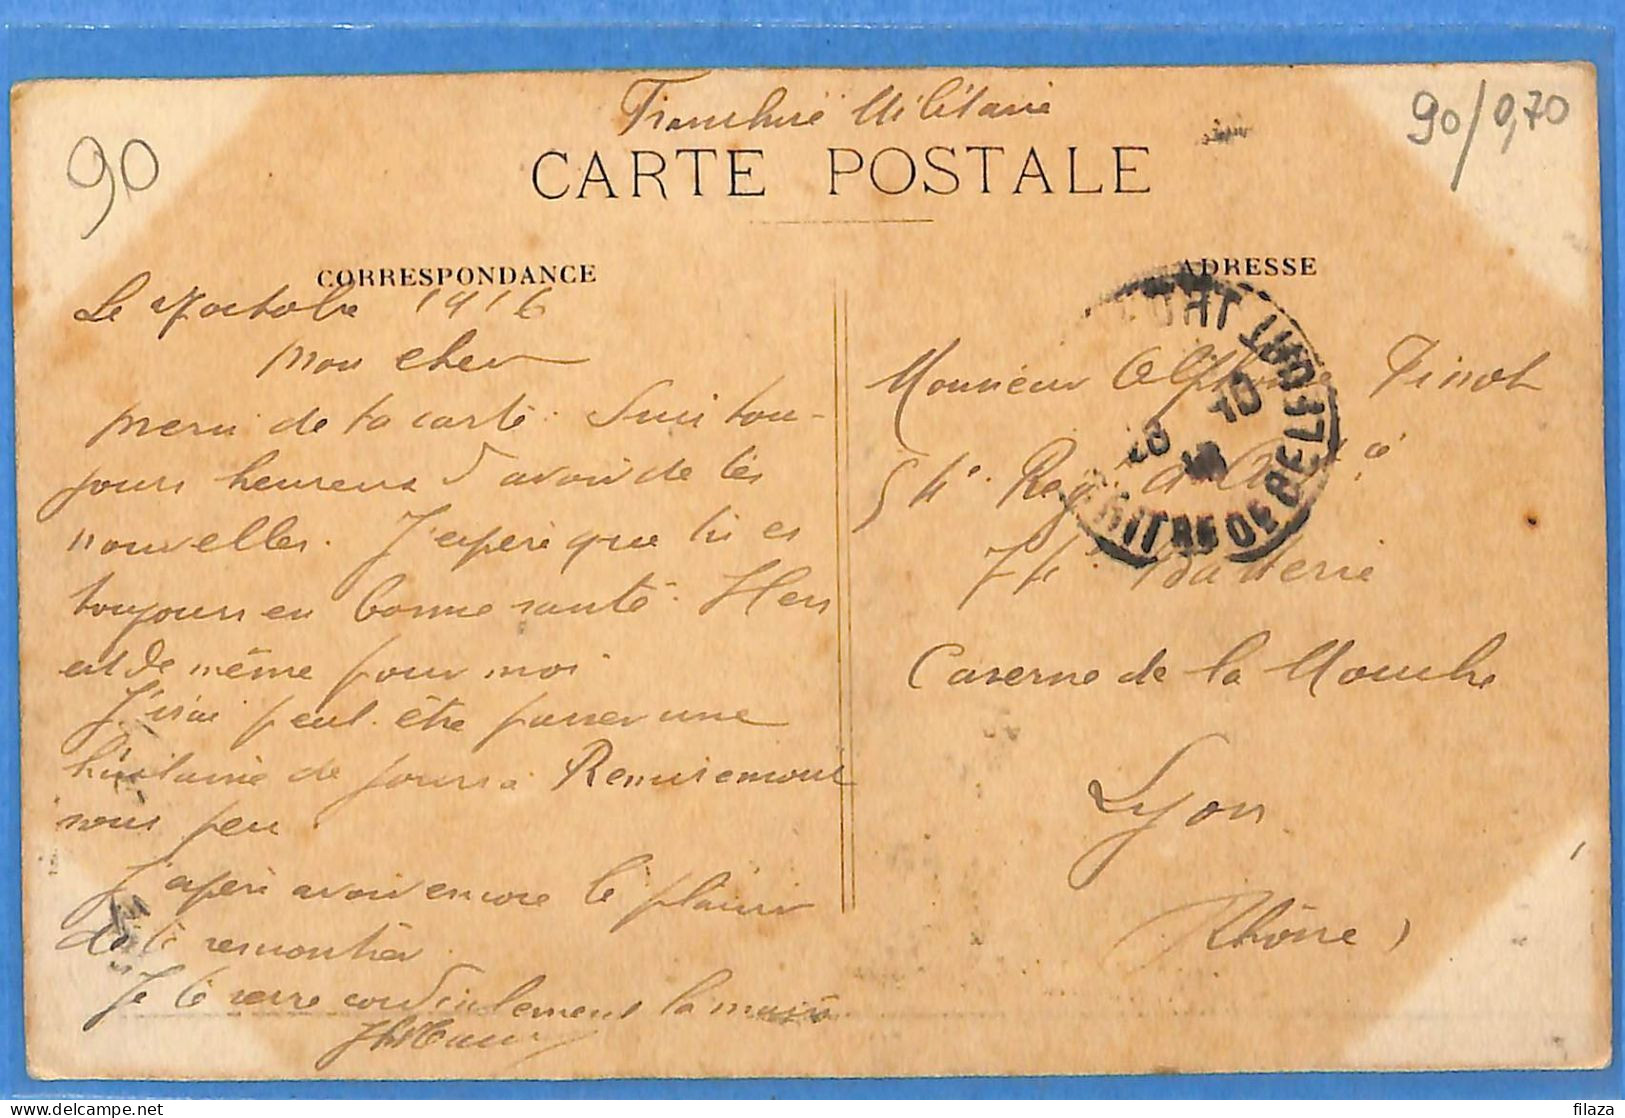 Franchise Militaire
90
90/0,70
CARTE POSTALE
CORRESPONDANCE
ADRESSE
Le octobre 1916
Mon cher
Merci de ta carte. Suis tou-
jours heureux d'avoir de tes
nouvelles. J'espère que tu es
toujours en bonne santé. Il en
est de même pour moi
J'irai peut-être passer une
huitaine de jours a Remiremont
sous peu.
J'espère avoir encore le plaisir
de te
Je te serre cordialement la main
Monsieur Alphonse
54e Reg d'Art
74e Batterie
Caserne de la Mouche
Lyon
Rhône)
TERRITRE DE BELFORT
10
delcampe.net
filaza